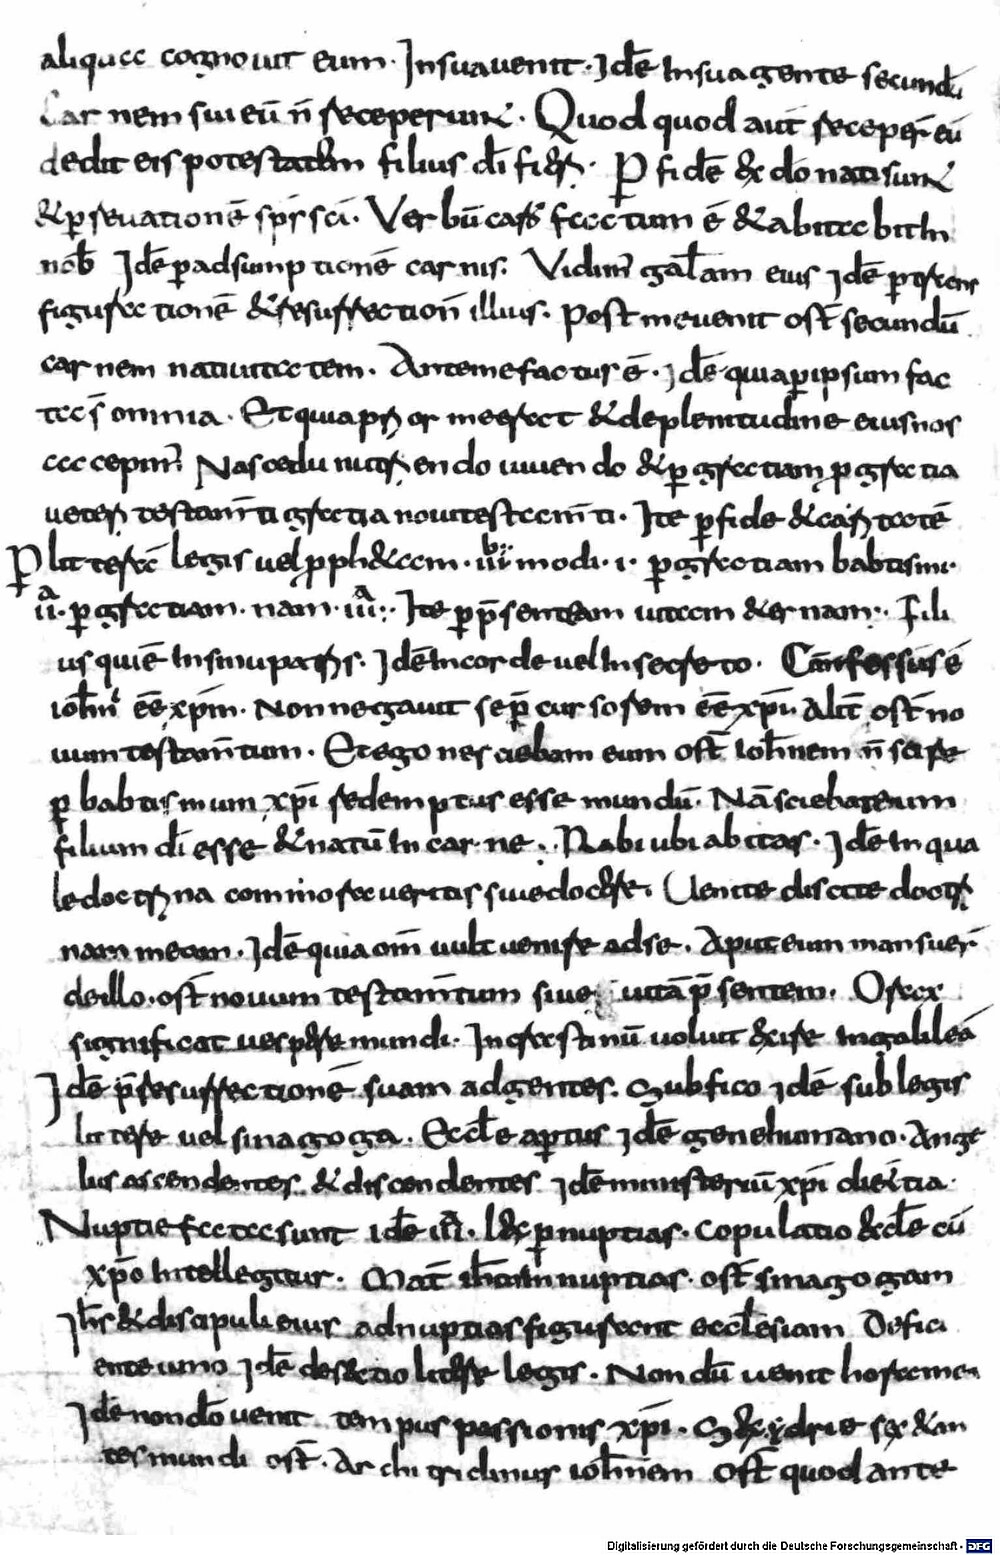 aliqua cognouit eum. In sua uenit. Idē In sua gente secundū
Carnem sui eū n̄ receperunt. Quod quod aut̄ receper̄ eū
dedit eis potestatem filius dī fieri. P̲ fidē & dō nati sunt
& p̲ seuationē sp̄s sc̄i. Verbū caro factum ē & abitabit In
nob̄ Idē p̲ adsumptionē carnis. Vidim̄ gl̄am eius Idē p̲
figurationē & resurrection̄ illius. Post me uenit ost̄ secundū
carnem natiuitatem. Ante me factus ē. Idē quia p̲ ipsum fac
ta s̄ omnia. Et quia prior me erat & de plenitudine eius nos
accepim̄ Nascendo uiuendo & p̲ gratiam p̲ gratia
ueteri testam̄ti gratia noui testam̄ti. Ite p̲ fide & caritatē
P̲ litterā legis uel p̲ph&am. modi. i. p̲ gratiam babtismi.
ii. p̲ gratiam. nam. iii. Ite p̲ p̄sentem uitam &ernam. Fili
us qui ē In sinu patris. Idē In corde uel In secreto. Confessus ē
ioh̄ni eē xp̄m. Non negauit se p̄cursorem eē xp̄i. Alit̄ ost̄ no
uum testam̄tum. Et ego nesciebam eum ost̄ ioh̄nem n̄ scire
p̲ babtismum xp̄i redemptus esse mundū. Nā sciebat eum
filium dī esse & natū In carne. Rabi ubi abitas. Idē In qua
le doctrina commoraueris siue docere. Uenite discite doctri
nam meam. Idē quia om̄ uult uenire ad se. Aput eum manser̄
de illo. ost̄ nouum testam̄tum siue uitā p̄sentem. Ora x
significat uespere mundi. In crastinū uoluit exire In galileā
Idē p̄ resurrectionē suam ad gentes. Sub fico idē sub legis
littere uel sinagoga. Ecc̄le apertus idē gene humano. Ange
lus ascendentes & discendentes idē ministeriū xp̄i dieitia.
Nuptie facte sunt idē l& p̲ nuptias. copulatio &cl̄e cū
xp̄o Intellegitur. Mat̄ ad nuptias. ost̄ sinagogam
Ih̄s & discipuli eius ad nuptias figurant eccl̄esiam Defici
ente uino Idē defectio littere legis. Nondū uenit hora mea
Idē nondō uenit tempus passionis xp̄i. S&xydrie sex &an
tes mundi ost̄. Archi triclinus ioh̄nem ost̄ quod ante
Digitalisierung gefördert durch die Deutsche Forschungsgemeinschaft - DFG